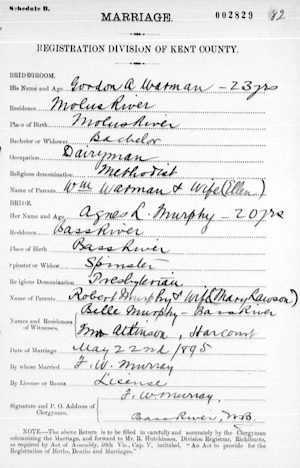 Schedule B.
002829 82
MARRIAGE.
REGISTRATION DIVISION OF KENT COUNTY.
BRIDEGROOM.
His Name and Age, Gordon A Watman - 23 yrs
Residence, Molus River
Place of Birth Molus River
Bachelor or Widower, Bachelor
Occupation, Dairyman
Religious denomination, Methodist
Name of Parents, Wm Watman & Wife (Ellen)
BRIDE.
Her Name and Age, Agnes L. Murphy - 20 yrs
Residence, Bass River
Place of Birth, Bass River
Spinster or Widow, Spinster
Religious Denomination, Presbyterian
Name of Parents, Robert Murphy & Wife (Mary Lawson)
Names and Residences of Witnesses. Belle Murphy - Bass River
Atkinson, Harcourt
Date of Marriage May 22nd 1895
By whom Married, F. W. Murray
By License or Banns, License
Signature and P. O. Address of Clergyman. F. W. Murray,
Bass River, N.B.
NOTE.—The above Return is to be filled in carefully and accurately by the Clergyman
solemnizing the Marriage, and forward to Mr. R. Hutchinson, Division Registrar, Richibucto,
as required by Act of Assembly, 50th Vic., Cap. V, intituled, "An Act to provide for the
Registration of Births, Deaths and Marriages."